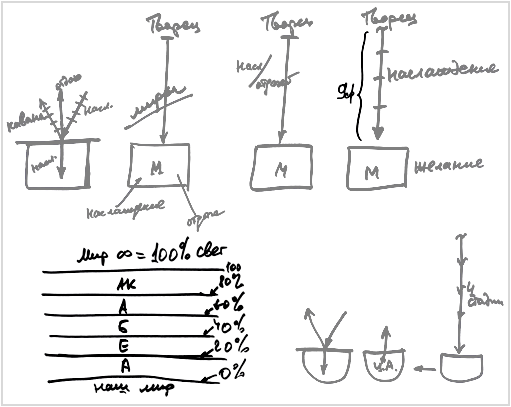 Творец
Творец
Творец
отдаю
кавана
насл.
насл.
миры
М
наслаждение
насл
М
наслаждение
М
желание
Мир ∞ = 100% свет
100
АК 80%
А 60%
Б 40%
Е 20%
А 0%
наш мир
4
стадии